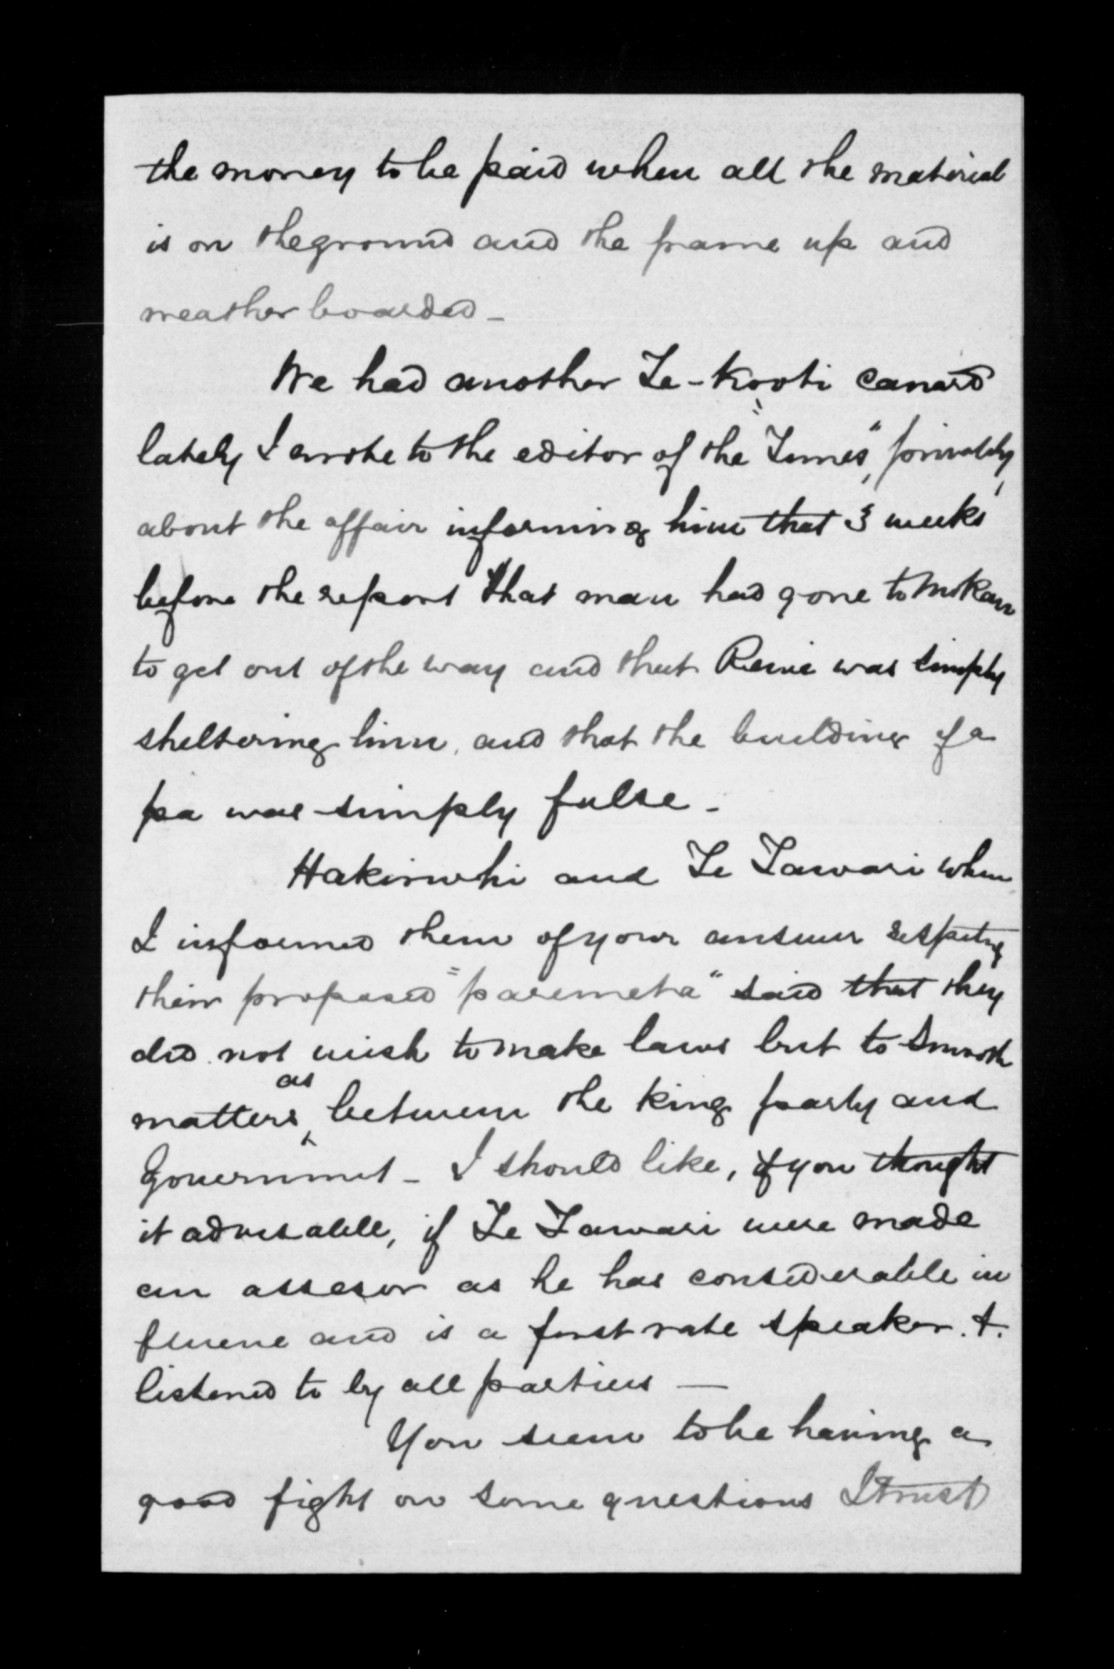 the money to be paid when all the material
is on the ground and the frame up and
weather boarded -
We had another Te-Kooti canard
lately I wrote to the editor of the "Times", privately,
about the affair informing him that 3 weeks
before the report that man had gone to Mokau
to get out of the way and that Rewi was simply
sheltering him, and that the building of a
pa was simply false -
Hakiriwhi and Te Tawari when
I informed them of your answer respecting
their proposed "paremeta" said that they
did not wish to make laws but to smooth
matters as between the king party and
Government - I should like, if you thought
it advisable, if Te Tawari were made
an assesor as he has considerable in
fluene and is a first rate speaker. &.
listened to by all parties —
You seem to be having a
good fight on some questions I trust